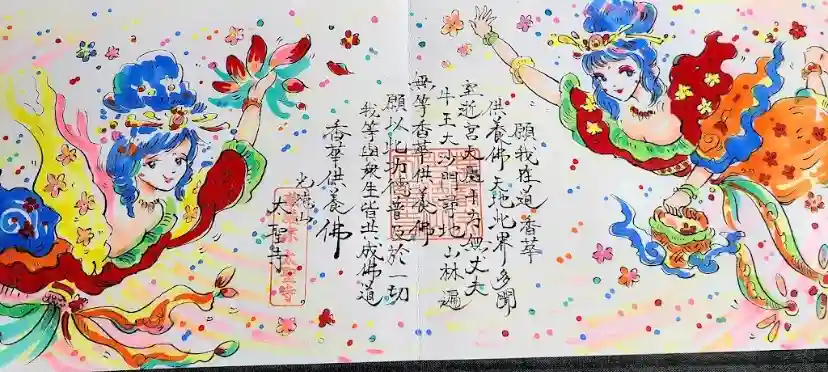 願我在道 香華
供養佛 天地此界多聞
室逝宮天處十方無丈夫
牛王大沙門尋地山林遍
無等香華供養佛
願以此功徳普及於一切
我等與衆生皆共成佛道
香華供養佛
大聖寺